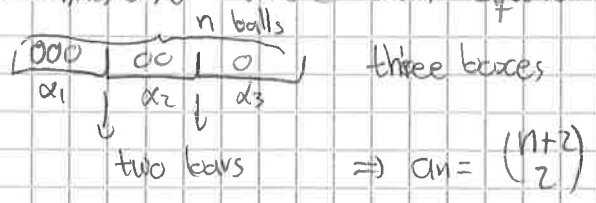 n balls
000 | 00 | 0 three boxes
α₁ α₂ α₃
two bars ⇒ an = (n+2 2)